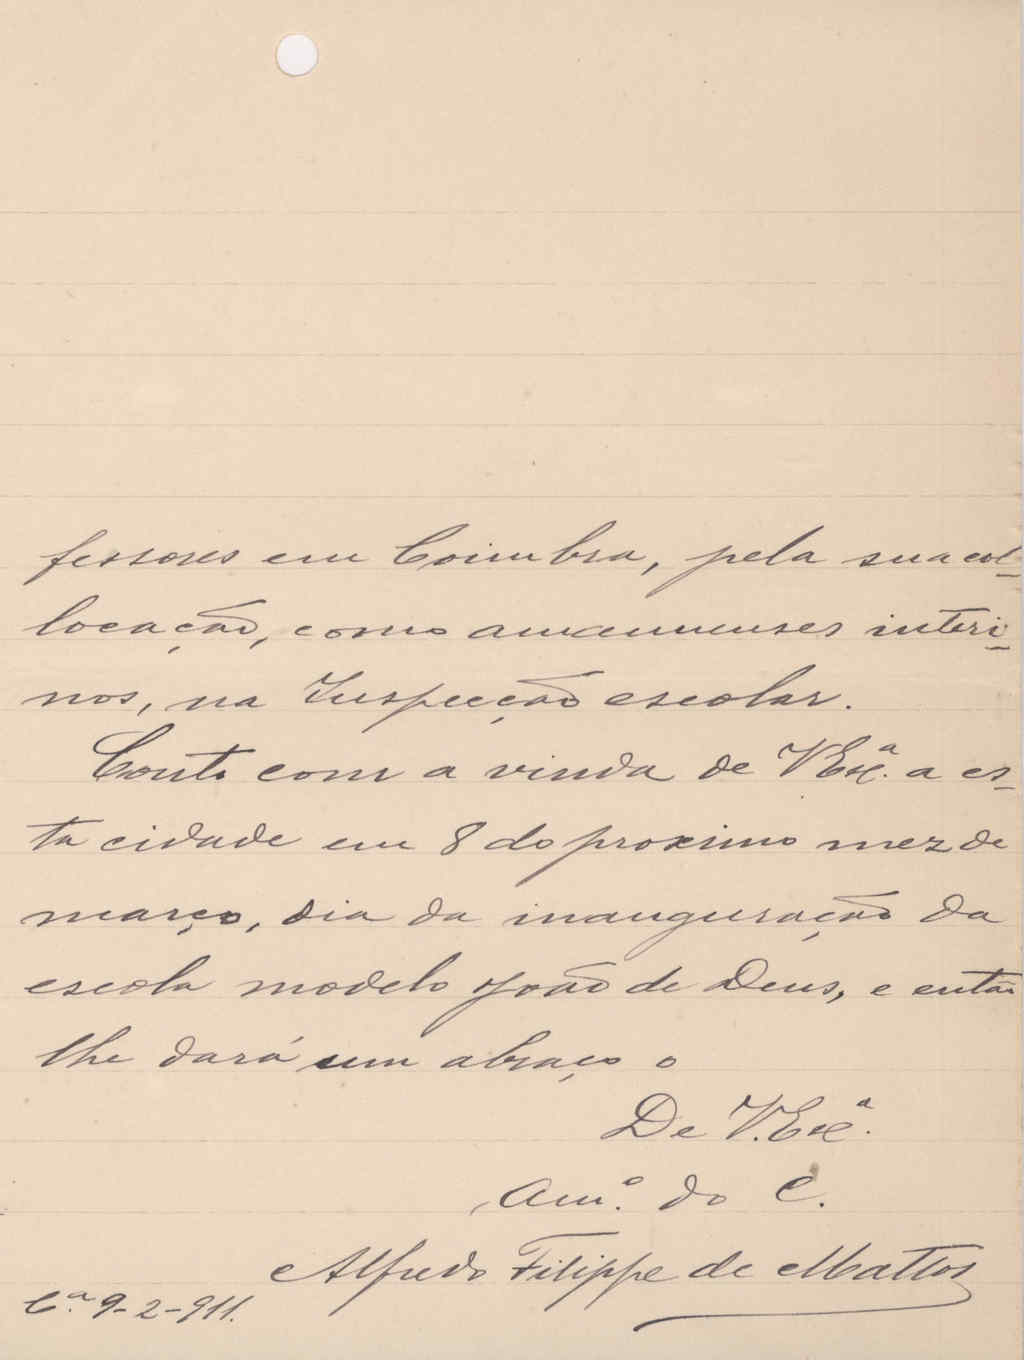 fessores em Coimbra, pela sua col-
locação, como amanuenses interi-
nos, na Inspecção escolar.
Conto com a vinda de V Ex.ª a es-
ta cidade em 8 do proximo mez de
março, dia da inauguração da
escola modelo João de Deus, e então
lhe dará um abraço o
De V. Ex.ª
Am.º do C.
Alfredo Filippe de Mattos
C.ª 9-2-911.